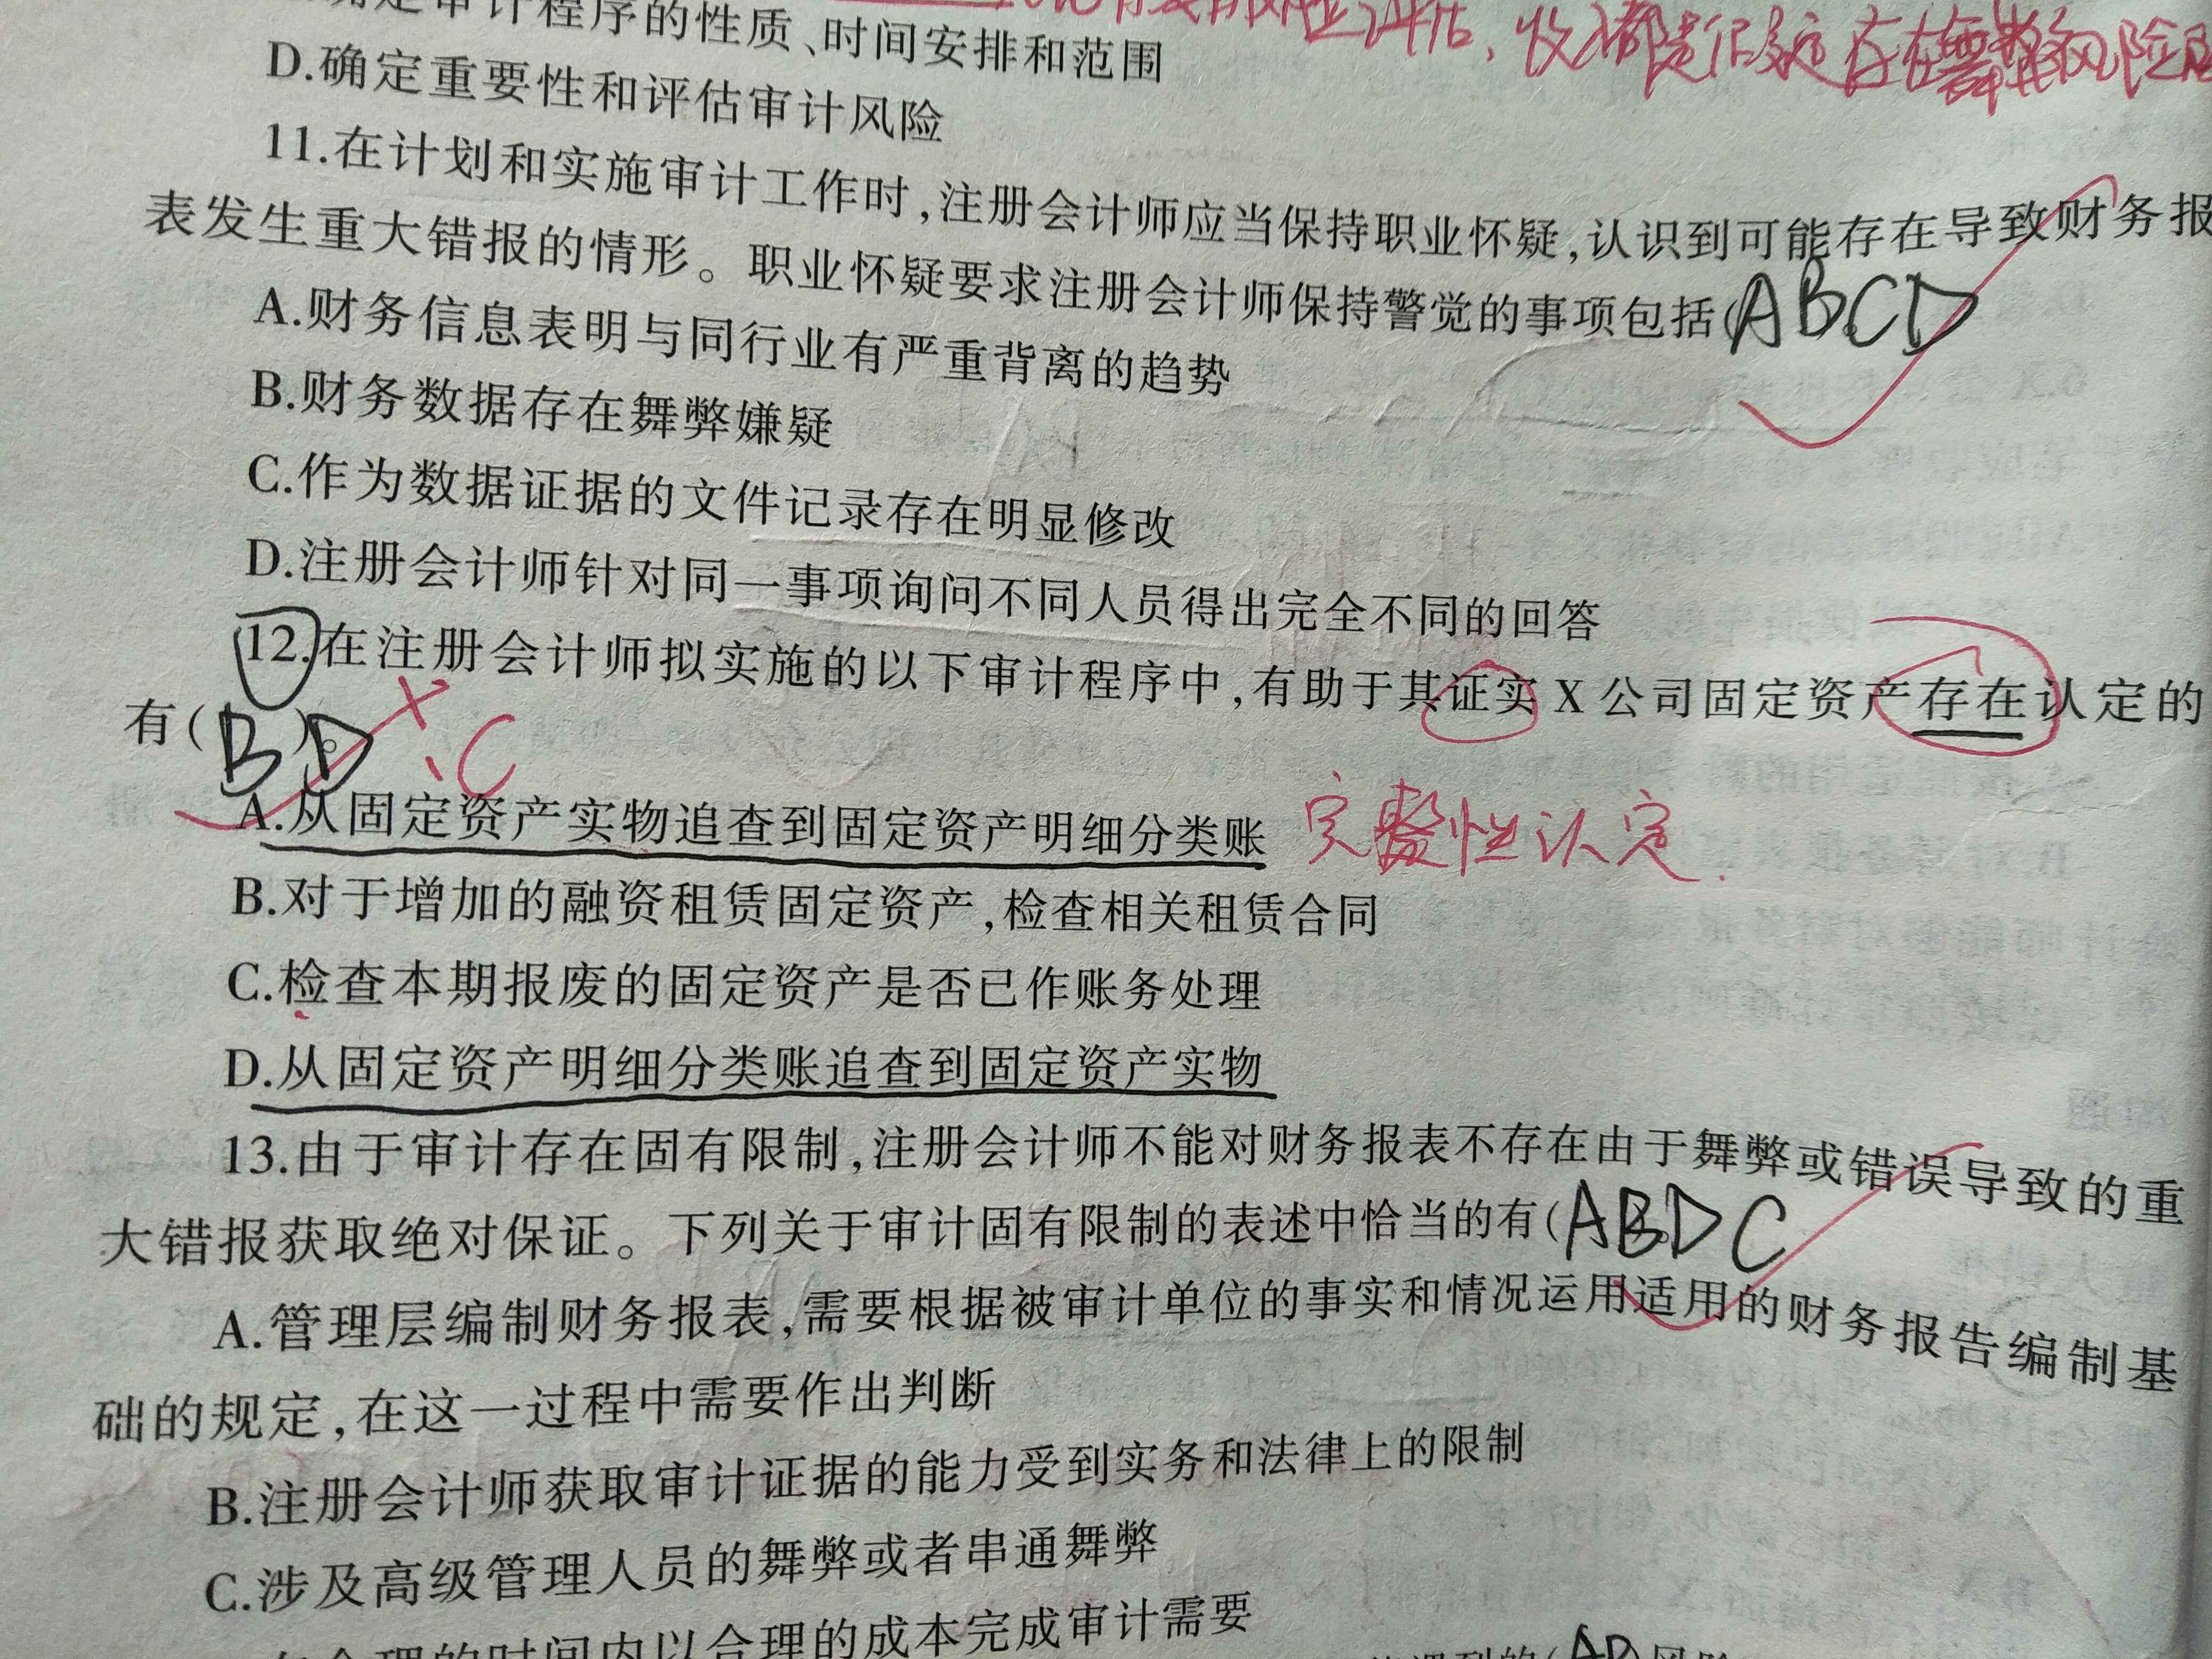 确定审计程序的性质、时间安排和范围
D.确定重要性和评估审计风险
11.在计划和实施审计工作时,注册会计师应当保持职业怀疑,认识到可能存在导致财务报
表发生重大错报的情形。职业怀疑要求注册会计师保持警觉的事项包括(ABCD
A.财务信息表明与同行业有严重背离的趋势
B.财务数据存在舞弊嫌疑
C.作为数据证据的文件记录存在明显修改
D.注册会计师针对同一事项询问不同人员得出完全不同的回答
12.在注册会计师拟实施的以下审计程序中,有助于其证实X公司固定资产存在认定的
有(BD)。 、C
A.从固定资产实物追查到固定资产明细分类账 完整性认定.
B.对于增加的融资租赁固定资产,检查相关租赁合同
C.检查本期报废的固定资产是否已作账务处理
D.从固定资产明细分类账追查到固定资产实物
13.由于审计存在固有限制,注册会计师不能对财务报表不存在由于舞弊或错误导致的重
大错报获取绝对保证。下列关于审计固有限制的表述中恰当的有(ABDC
A.管理层编制财务报表,需要根据被审计单位的事实和情况运用适用的财务报告编制基
础的规定,在这一过程中需要作出判断
B.注册会计师获取审计证据的能力受到实务和法律上的限制
C.涉及高级管理人员的舞弊或者串通舞弊
在合理的时间内以合理的成本完成审计需要